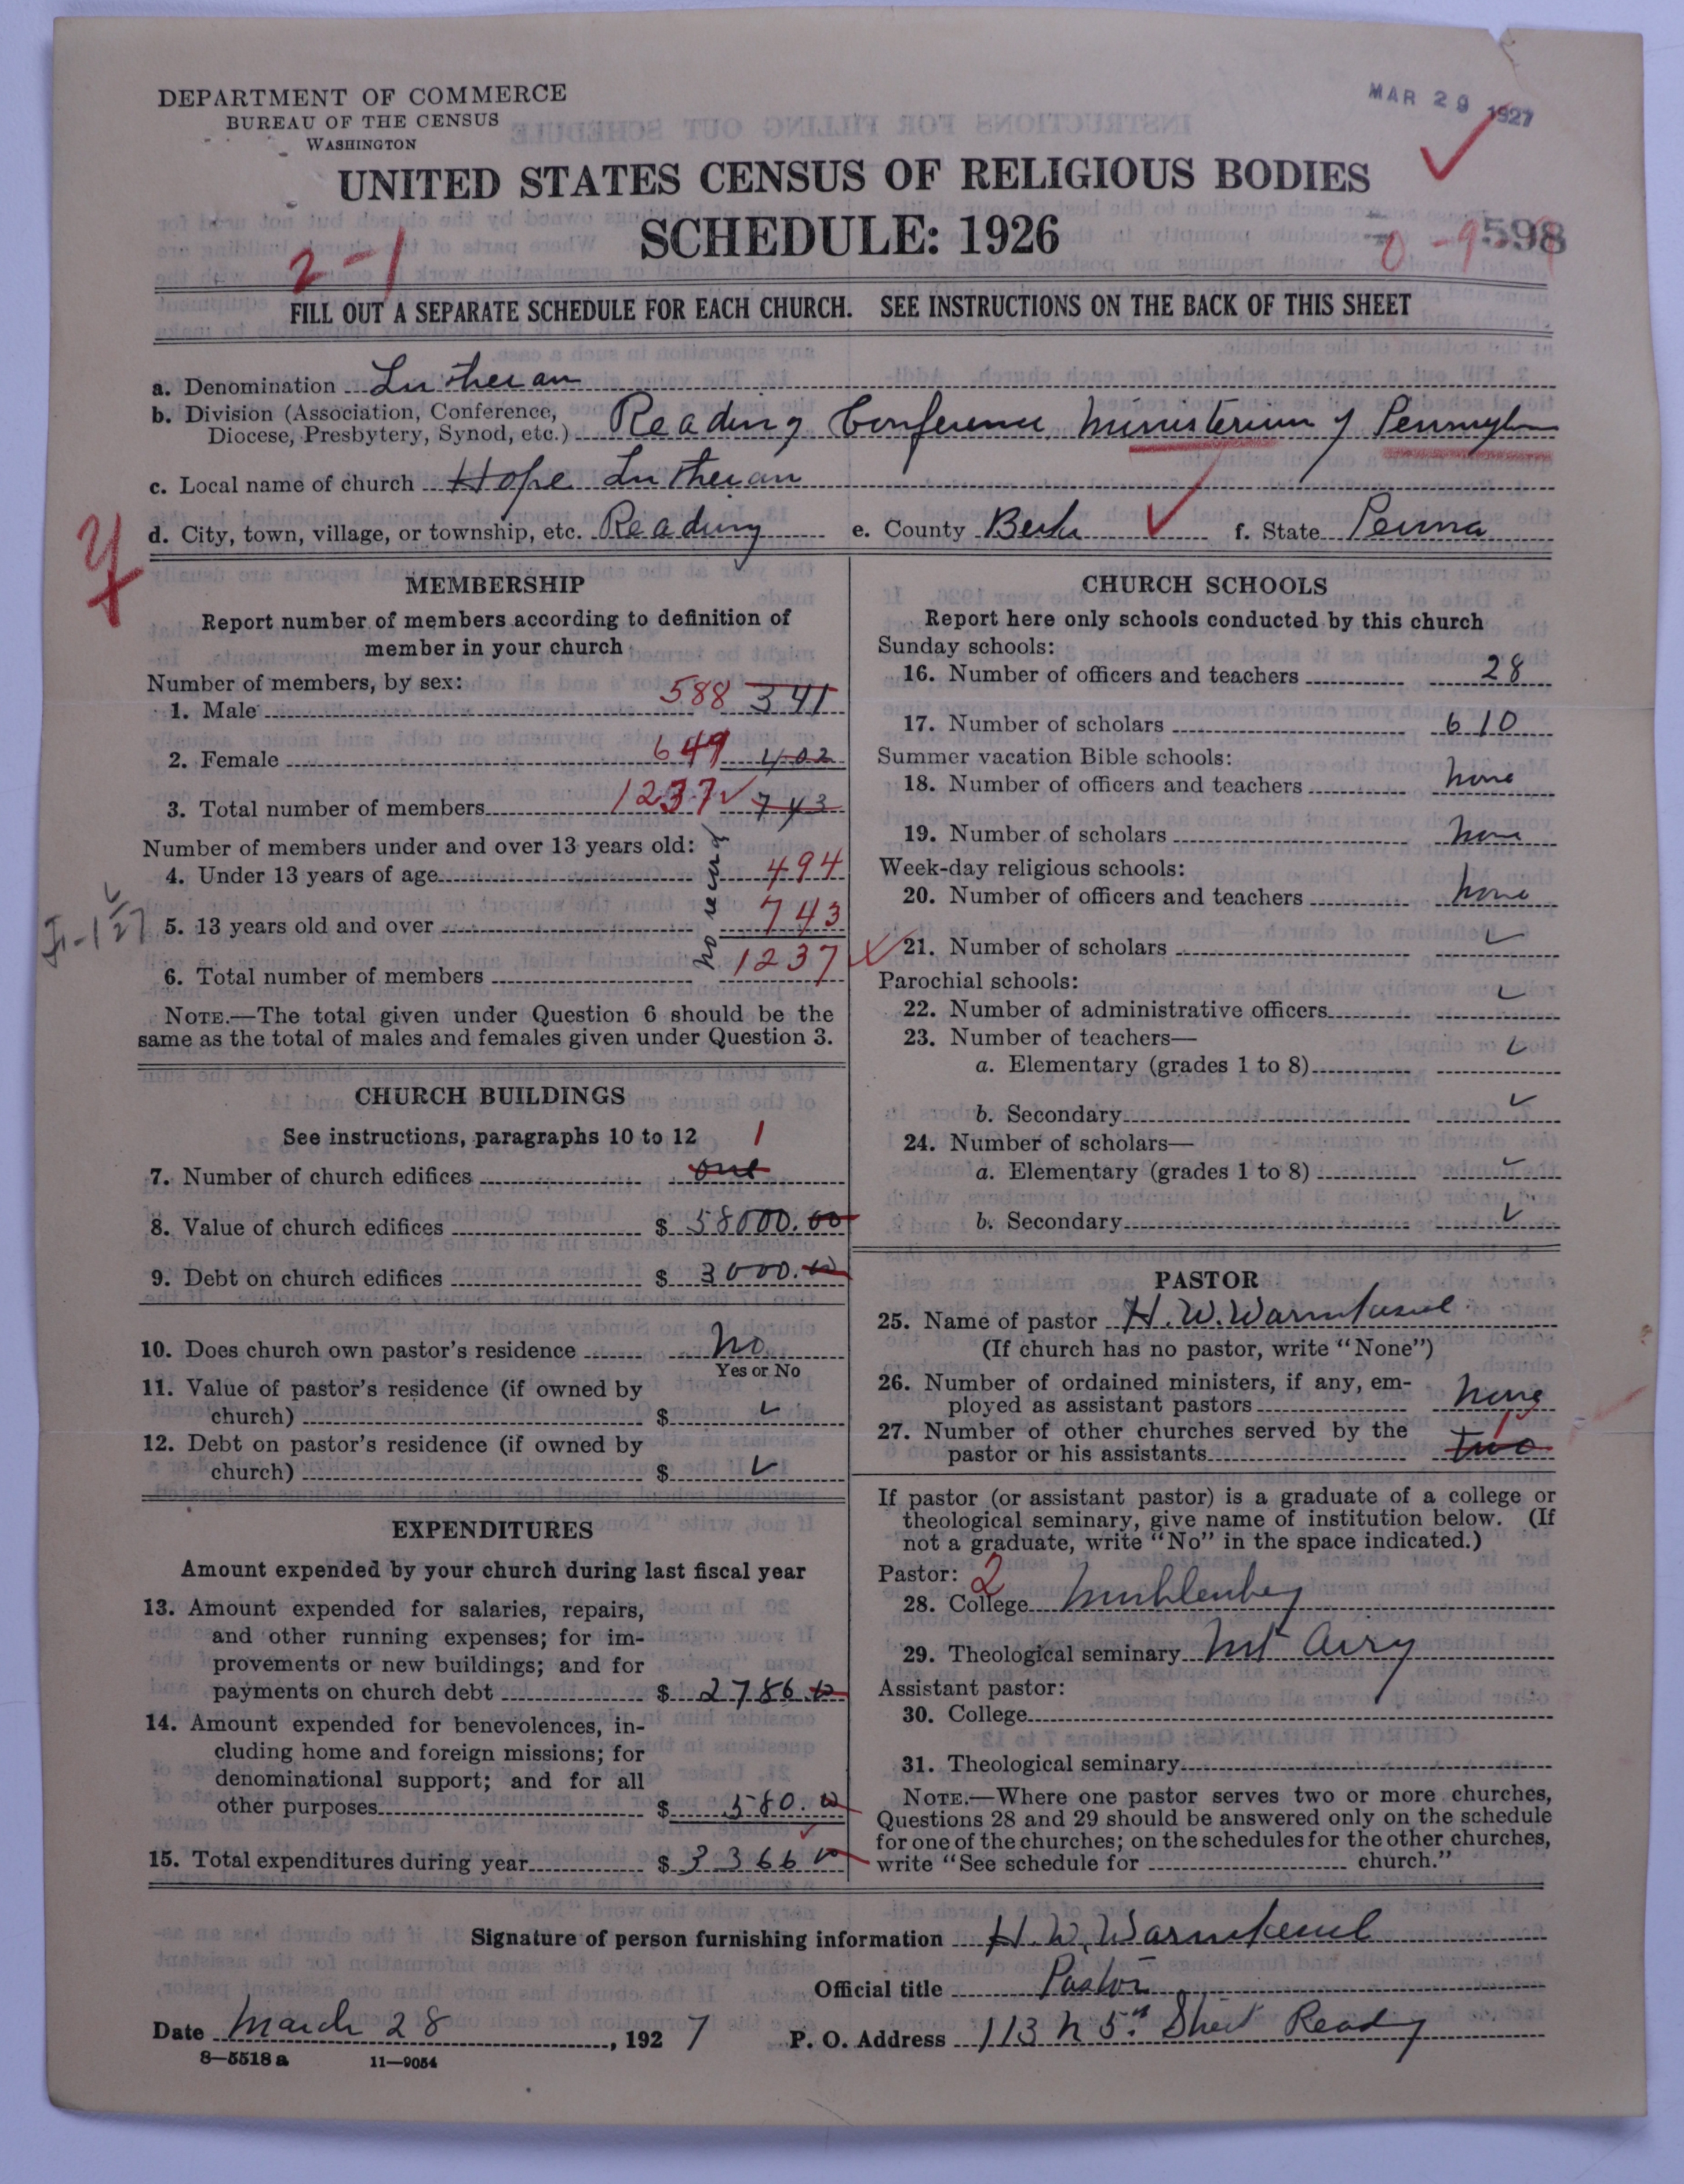 DEPARTMENT OF COMMERCE
BUREAU OF THE CENSUS
WASHINGTON
MAR 29 1927
UNITED STATES CENSUS OF RELIGIOUS BODIES
SCHEDULE: 1926
2-1
0-9598
FILL OUT A SEPARATE SCHEDULE FOR EACH CHURCH. SEE INSTRUCTIONS ON THE BACK OF THIS SHEET
a. Denomination Lutheran
b. Division (Association, Conference, Diocese, Presbytery, Synod, etc.) Reading Conference Ministerium of Pennsylvn
c. Local name of church Hope Lutheran
d. City, town, village, or township, etc. Reading e. County Berks f. State Penna
MEMBERSHIP
Report number of members according to definition of
member in your church
Number of members, by sex:
1. Male 588 341
2. Female 649 402
3. Total number of members 1237 743
Number of members under and over 13 years old:
no record
4. Under 13 years of age 494
5. 13 years old and over 743
6. Total number of members 1237
NOTE.—The total given under Question 6 should be the
same as the total of males and females given under Question 3.
CHURCH BUILDINGS
See instructions, paragraphs 10 to 12
7. Number of church edifices one 1
8. Value of church edifices $ 58000.00
9. Debt on church edifices $ 3000.00
10. Does church own pastor's residence No
Yes or No
11. Value of pastor's residence (if owned by
church) $ ✓
12. Debt on pastor's residence (if owned by
church) $ ✓
EXPENDITURES
Amount expended by your church during last fiscal year
13. Amount expended for salaries, repairs,
and other running expenses; for im-
provements or new buildings; and for
payments on church debt $ 2786.00
14. Amount expended for benevolences, in-
cluding home and foreign missions; for
denominational support; and for all
other purposes $ 580.00
15. Total expenditures during year $ 3366 00
CHURCH SCHOOLS
Report here only schools conducted by this church
Sunday schools:
16. Number of officers and teachers 28
17. Number of scholars 610
Summer vacation Bible schools:
18. Number of officers and teachers none
19. Number of scholars none
Week-day religious schools:
20. Number of officers and teachers none
21. Number of scholars ✓
Parochial schools:
22. Number of administrative officers ✓
23. Number of teachers—
a. Elementary (grades 1 to 8) ✓
b. Secondary ✓
24. Number of scholars—
a. Elementary (grades 1 to 8) ✓
b. Secondary ✓
PASTOR
25. Name of pastor H. W. Warmkessel
(If church has no pastor, write "None")
26. Number of ordained ministers, if any, em-
ployed as assistant pastors none
27. Number of other churches served by the
pastor or his assistants two 1
If pastor (or assistant pastor) is a graduate of a college or
theological seminary, give name of institution below. (If
not a graduate, write "No" in the space indicated.)
Pastor: 2
28. College Muhlenberg
29. Theological seminary Mt Airy
Assistant pastor:
30. College
31. Theological seminary
NOTE.—Where one pastor serves two or more churches,
Questions 28 and 29 should be answered only on the schedule
for one of the churches; on the schedules for the other churches,
write "See schedule for church."
Signature of person furnishing information H. W. Warmkessel
Official title Pastor
Date March 28, 1927 P. O. Address 113 N 5th Street Reading
8-5518 a 11-9054